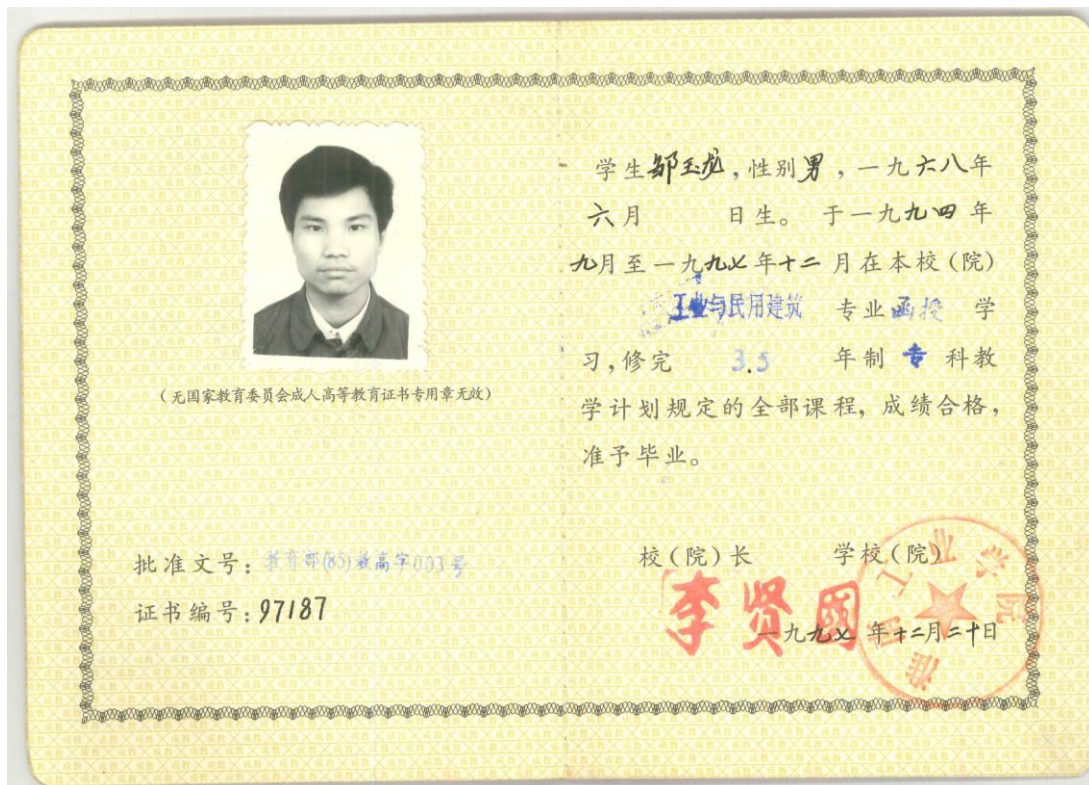 (无国家教育委员会成人高等教育证书专用章无效)
批准文号:教育部(85)教高字003号
证书编号:97187
学生邹玉龙,性别男,一九六八年
六月 日生。于一九九四年
九月至一九九七年十二月在本校(院)
工业与民用建筑 专业函授 学
习,修完 3.5 年制 专 科教
学计划规定的全部课程,成绩合格,
准予毕业。
校(院)长 学校(院)
李贤国
一九九七年十二月二十日
淮南工业学院